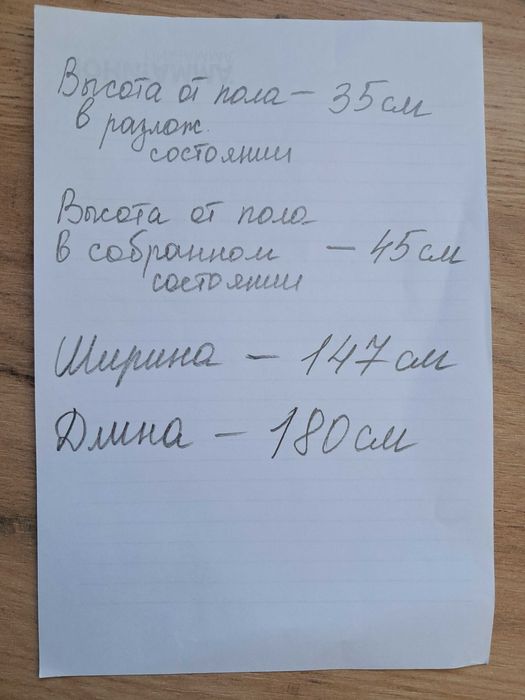 Высота от пола – 35 см
в разлож.
состоянии
Высота от пола
в собранном – 45 см
состоянии
Ширина – 147 см
Длина – 180 см